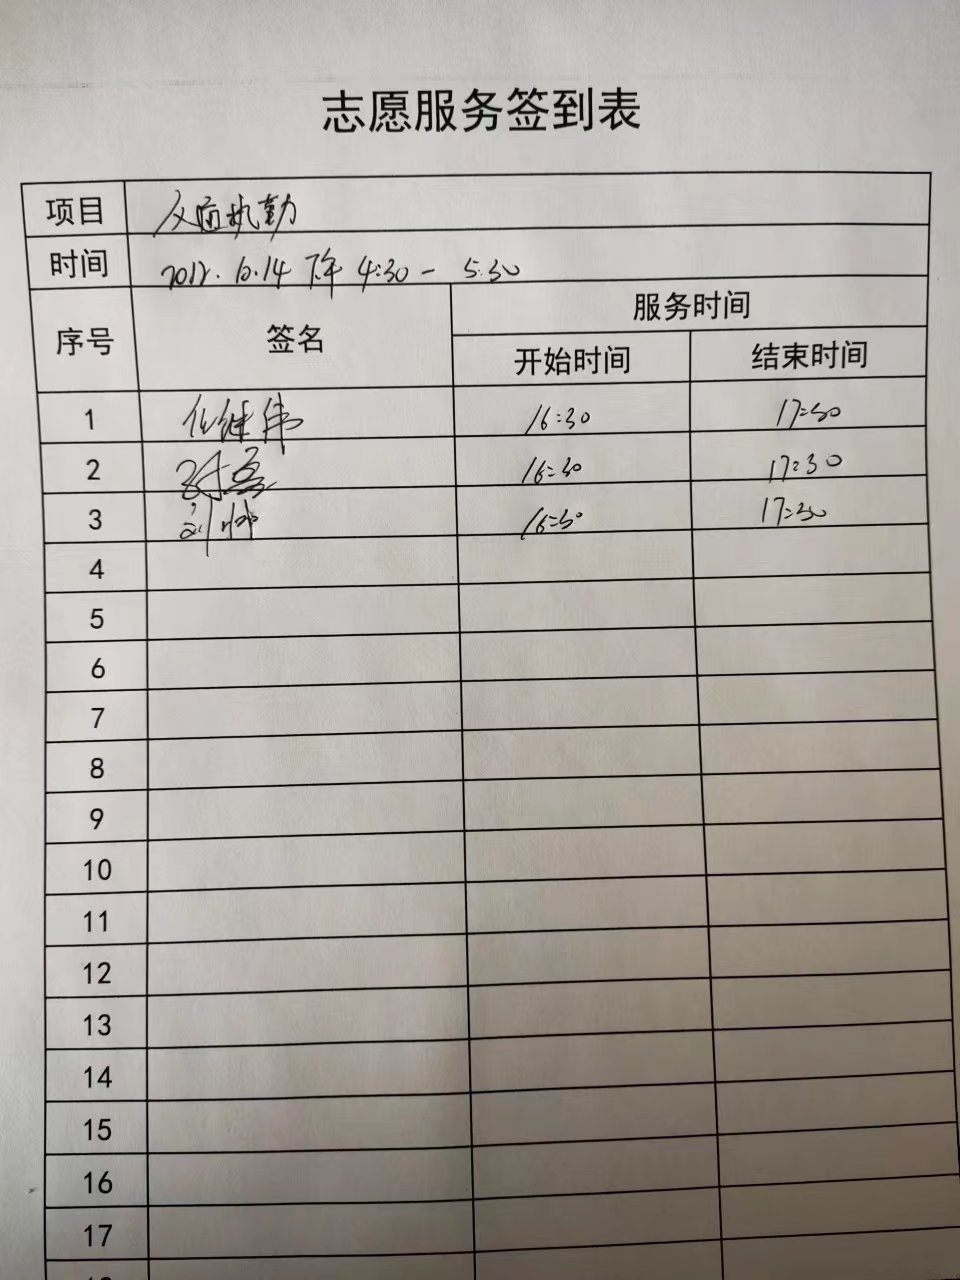 志愿服务签到表
项目 文通执勤
时间 下午 4:30 - 5:30
序号 签名 服务时间
开始时间 结束时间
1 16:30 17:30
2 16:30 17:30
3 16:30 17:30
4
5
6
7
8
9
10
11
12
13
14
15
16
17